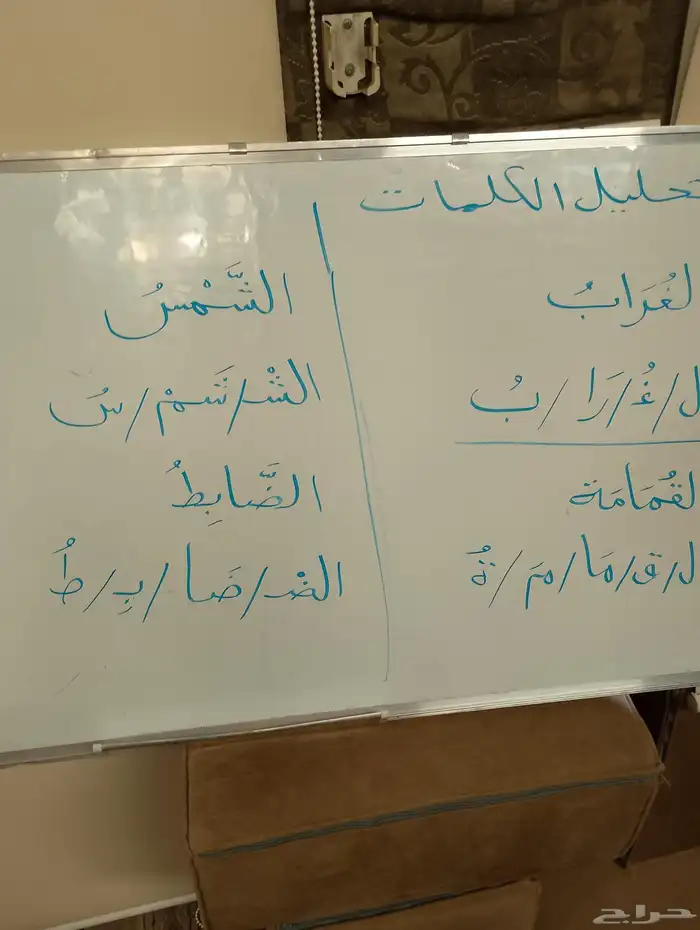 تحليل الكلمات
لغُرَابُ
ل/غُ/رَا/بُ
لقُمَامَة
ل/ق/مَا/مَ/ةُ
الشَّمْسُ
الشْ/شَمْ/سُ
الضَّابِطُ
الضْ/ضَا/بِ/طُ
حراج